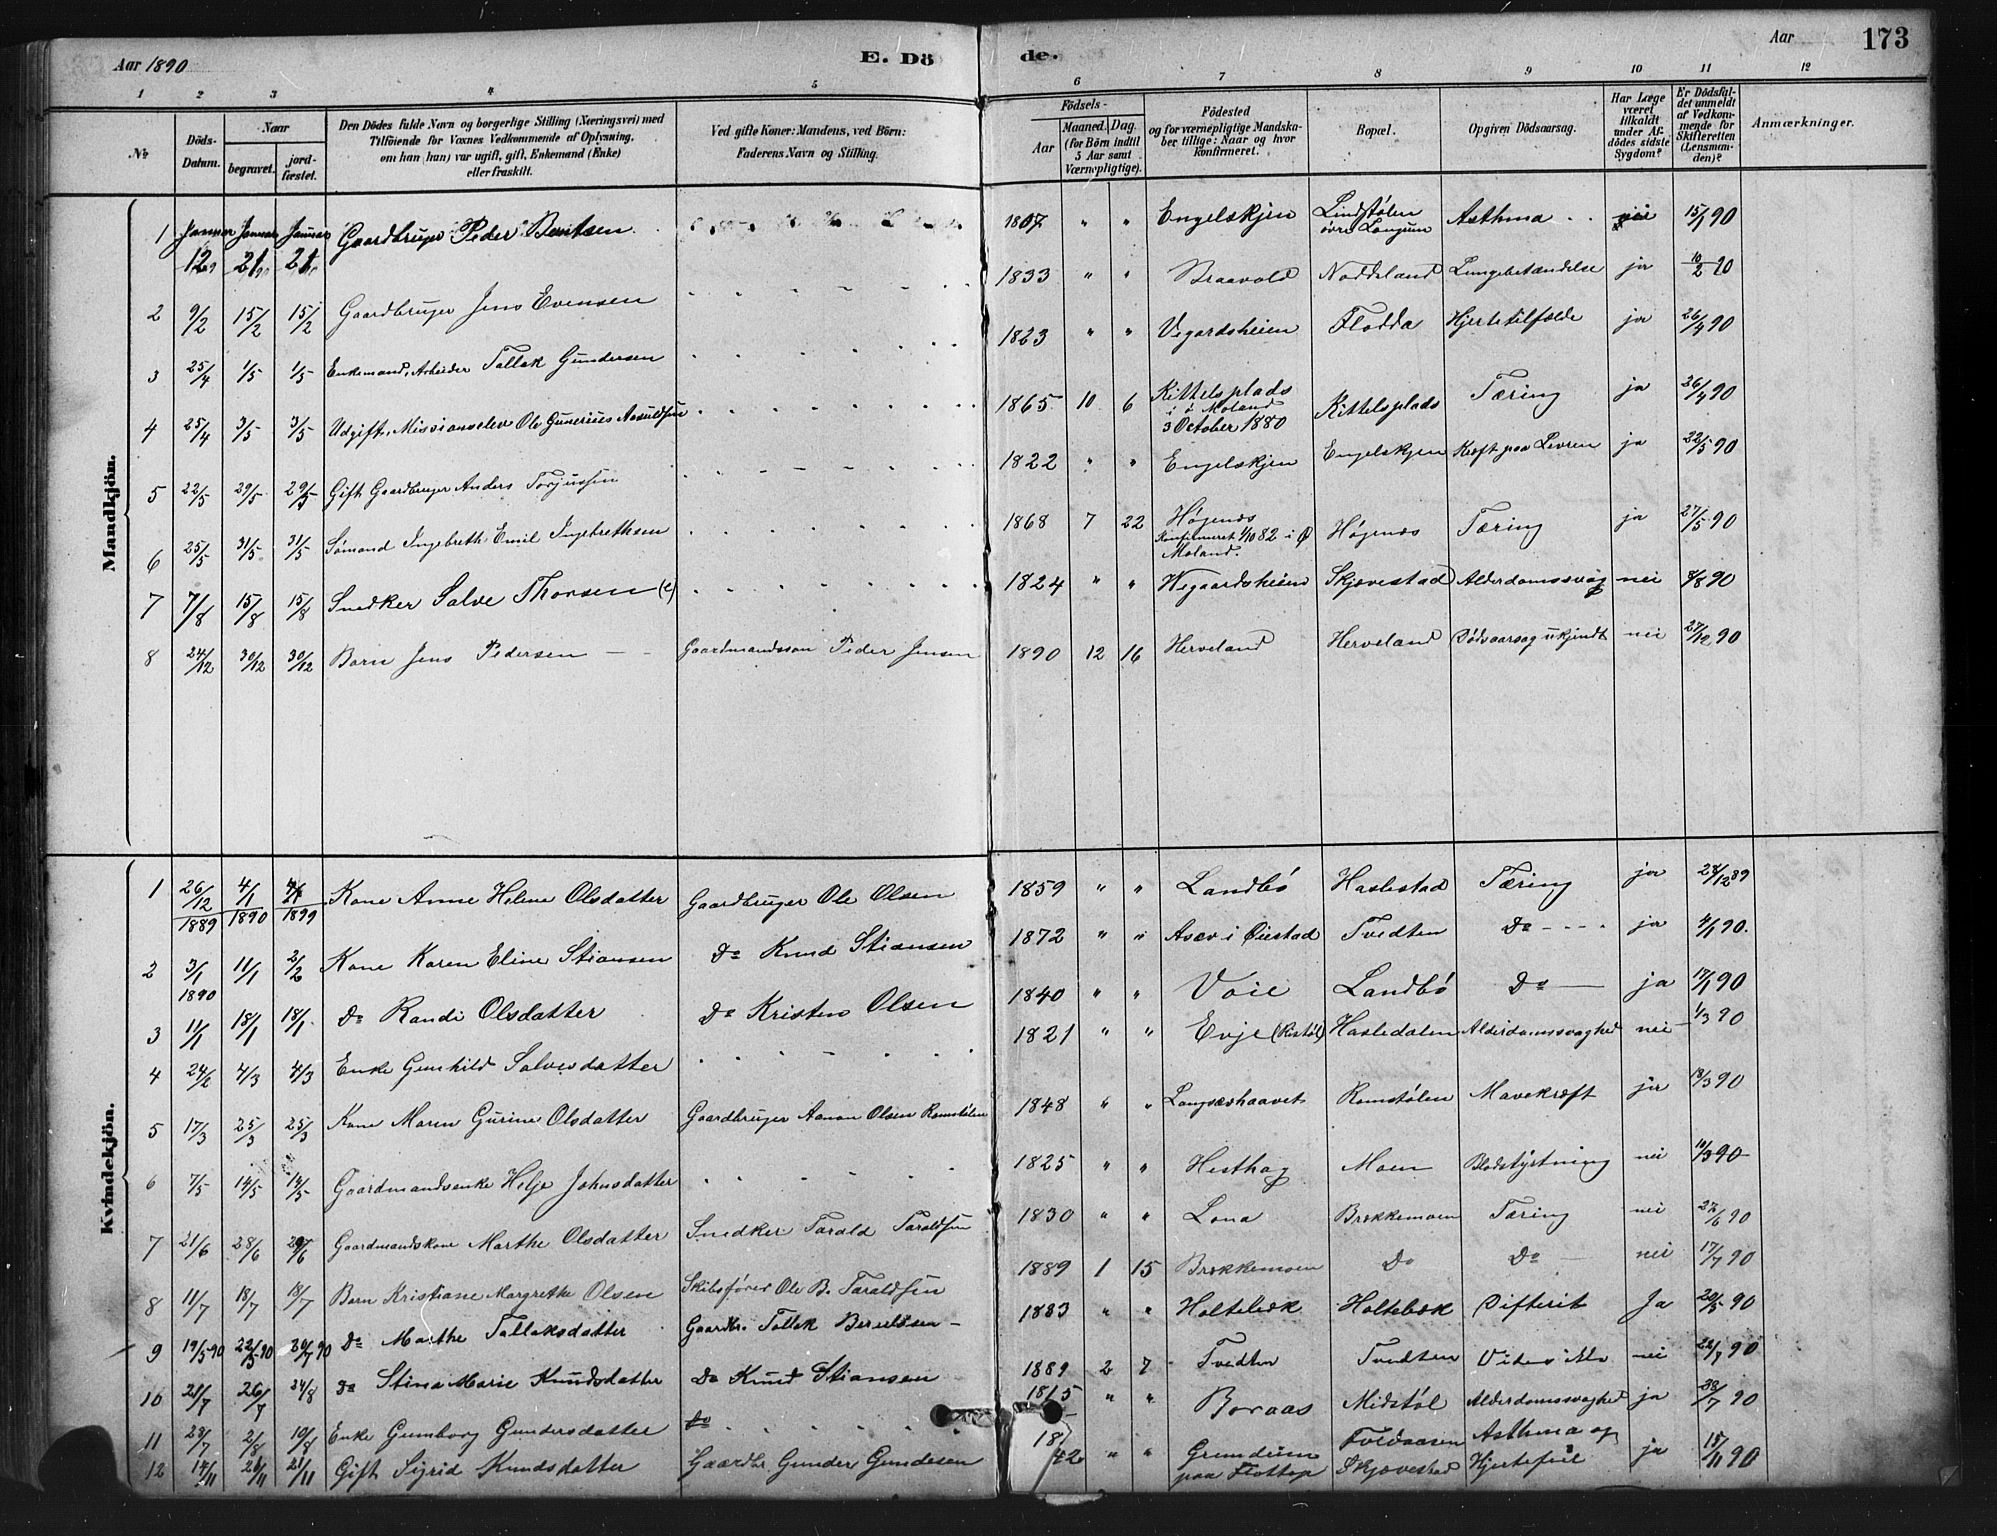 Aar 1890 E. Dö de. Aar 173
1 2 3 4 5 6 7 8 9 10 11 12
№
Döds-Datum.
Naar
begravet.
jordfæstet.
Den Dödes fulde Navn og borgerlige Stilling (Næringsvei) med
Tilföiende for Voxnes Vedkommende af Oplysning,
om han (hun) var ugift, gift, Enkemand (Enke)
eller fraskilt.
Ved gifte Koner: Mandens, ved Börn:
Faderens Navn og Stilling.
Födsels-
Aar
Maaned. Dag.
(for Börn indtil
5 Aar samt
Værnepligtige).
Födested
og for værnepligtige Mandska-
ber tillige: Naar og hvor
Konfirmeret.
Bopæl.
Opgiven Dödsaarsag.
Har Læge
været
tilkaldt
under Af-
dödes sidste
Sygdom?
Er Dödsfal-
det anmeldt
af Vedkom-
mende for
Skifteretten
(Lensman-
den)?
Anmærkninger.
Mandkjön.
1 Januar 12 Januar 21 Januar 21 Gaardbruger Peder Bentsen 1807 " " Engelskjen Lindstølen øvre Langum Asthma nei 15/1 90
2 9/2 15/2 15/2 Gaardbruger Jens Evensen 1833 " " Braavold Noddeland Lungebetændelse ja 10/2 90
3 25/4 1/5 1/5 Enkemand, Arbeider Tallak Gundersen 1823 " " Vegardsheien Flodda Hjertetilfælde ja 26/4 90
4 25/4 3/5 3/5 Ugift, Missionselev Ole Gunerius Aasuldsen 1865 10 6 Kittelsplads i ø Moland 3 October 1880 Kittelsplads Tæring ja 26/4 90
5 22/5 29/5 29/5 Gift Gaardbruger Anders Torjussen 1822 " " Engelskjen Engelskjen Kræft paa Levren ja 22/5 90
6 25/5 31/5 31/5 Sømand Ingebreth Emil Ingebrethsen 1868 7 22 Høgenæs Konfirmeret 1/10 82 i Ø Moland. Høgenæs Tæring ja 27/5 90
7 7/8 15/8 15/8 Snedker Salve Thorsen (e) 1824 " " Wegaardsheien Skjævestad Alderdomssvag nei 8/8 90
8 24/12 30/12 30/12 Barn Jens Pedersen Gaardmandssøn Peder Jensen 1890 12 16 Herveland Herveland Dødsaarsag ukjendt nei 27/12 90
Kvindekjön.
1 26/12 1889 4/1 1890 4/1 1899 Kone Anne Helene Olsdatter Gaardbruger Ole Olsen 1859 " " Landbø Haslestad Tæring ja 28/12 89
2 3/1 1890 11/1 2/2 Kone Karen Eline Stiansen Do Knud Stiansen 1872 " " Asæv i Øiestad Tvedten Do ja 4/1 90.
3 11/1 18/1 18/1 Do Randi Olsdatter Do Kristen Olsen 1840 " " Voie Landbø Do ja 17/1 90
4 24/2 4/3 4/3 Enke Gunhild Salvesdatter 1821 " " Evje (Ristøl) Hasledalen Alderdomssvaghed nei 1/3 90
5 17/3 25/3 25/3 Kone Maren Gurine Olsdatter Gaardbruger Aanon Olsen Ramstølen 1848 " " Langsæehaavet Ramstølen Mavekræft ja 18/3 90
6 7/5 14/5 14/5 Gaardmandsenke Helje Johnsdatter 1825 " " Hesthag Moen Blodstyrtning nei 10/5 90
7 21/6 28/6 28/6 Gaardmandskone Marthe Olsdatter Snedker Tarald Taraldsen 1830 " " Lona Brekkemoen Tæring nei 22/6 90
8 11/7 18/7 18/7 Barn Kristiane Margrethe Olsen Skibsfører Ole B. Taraldsen 1889 1 15 Brekkemoen Do Do nei 17/7 90
9 19/5 90 22/5 90 20/7 90 Do Marthe Tallaksdatter Gaardbr. Tallak Berulsen 1883 " " Holtebæk Holtebæk Difterit Ja 20/5 90
10 21/7 26/7 24/8 Do Stina Marie Knudsdatter Do Knud Stiansen 1889 2 7 Tvedten Tvedten Vides ikke nei 22/7 90
11 23/7 2/8 10/8 Enke Gumborg Gundersdatter Do 1815 " " Boraas Midstøl Alderdomssvaghed ja 28/7 90
12 14/11 21/11 21/11 Gift Sigrid Knudsdatter Gaardbr Gunder Gundesen 1842 " " Grundesen paa Flottop Skjævestad Asthma og Hjertefeil ja 15/11 90